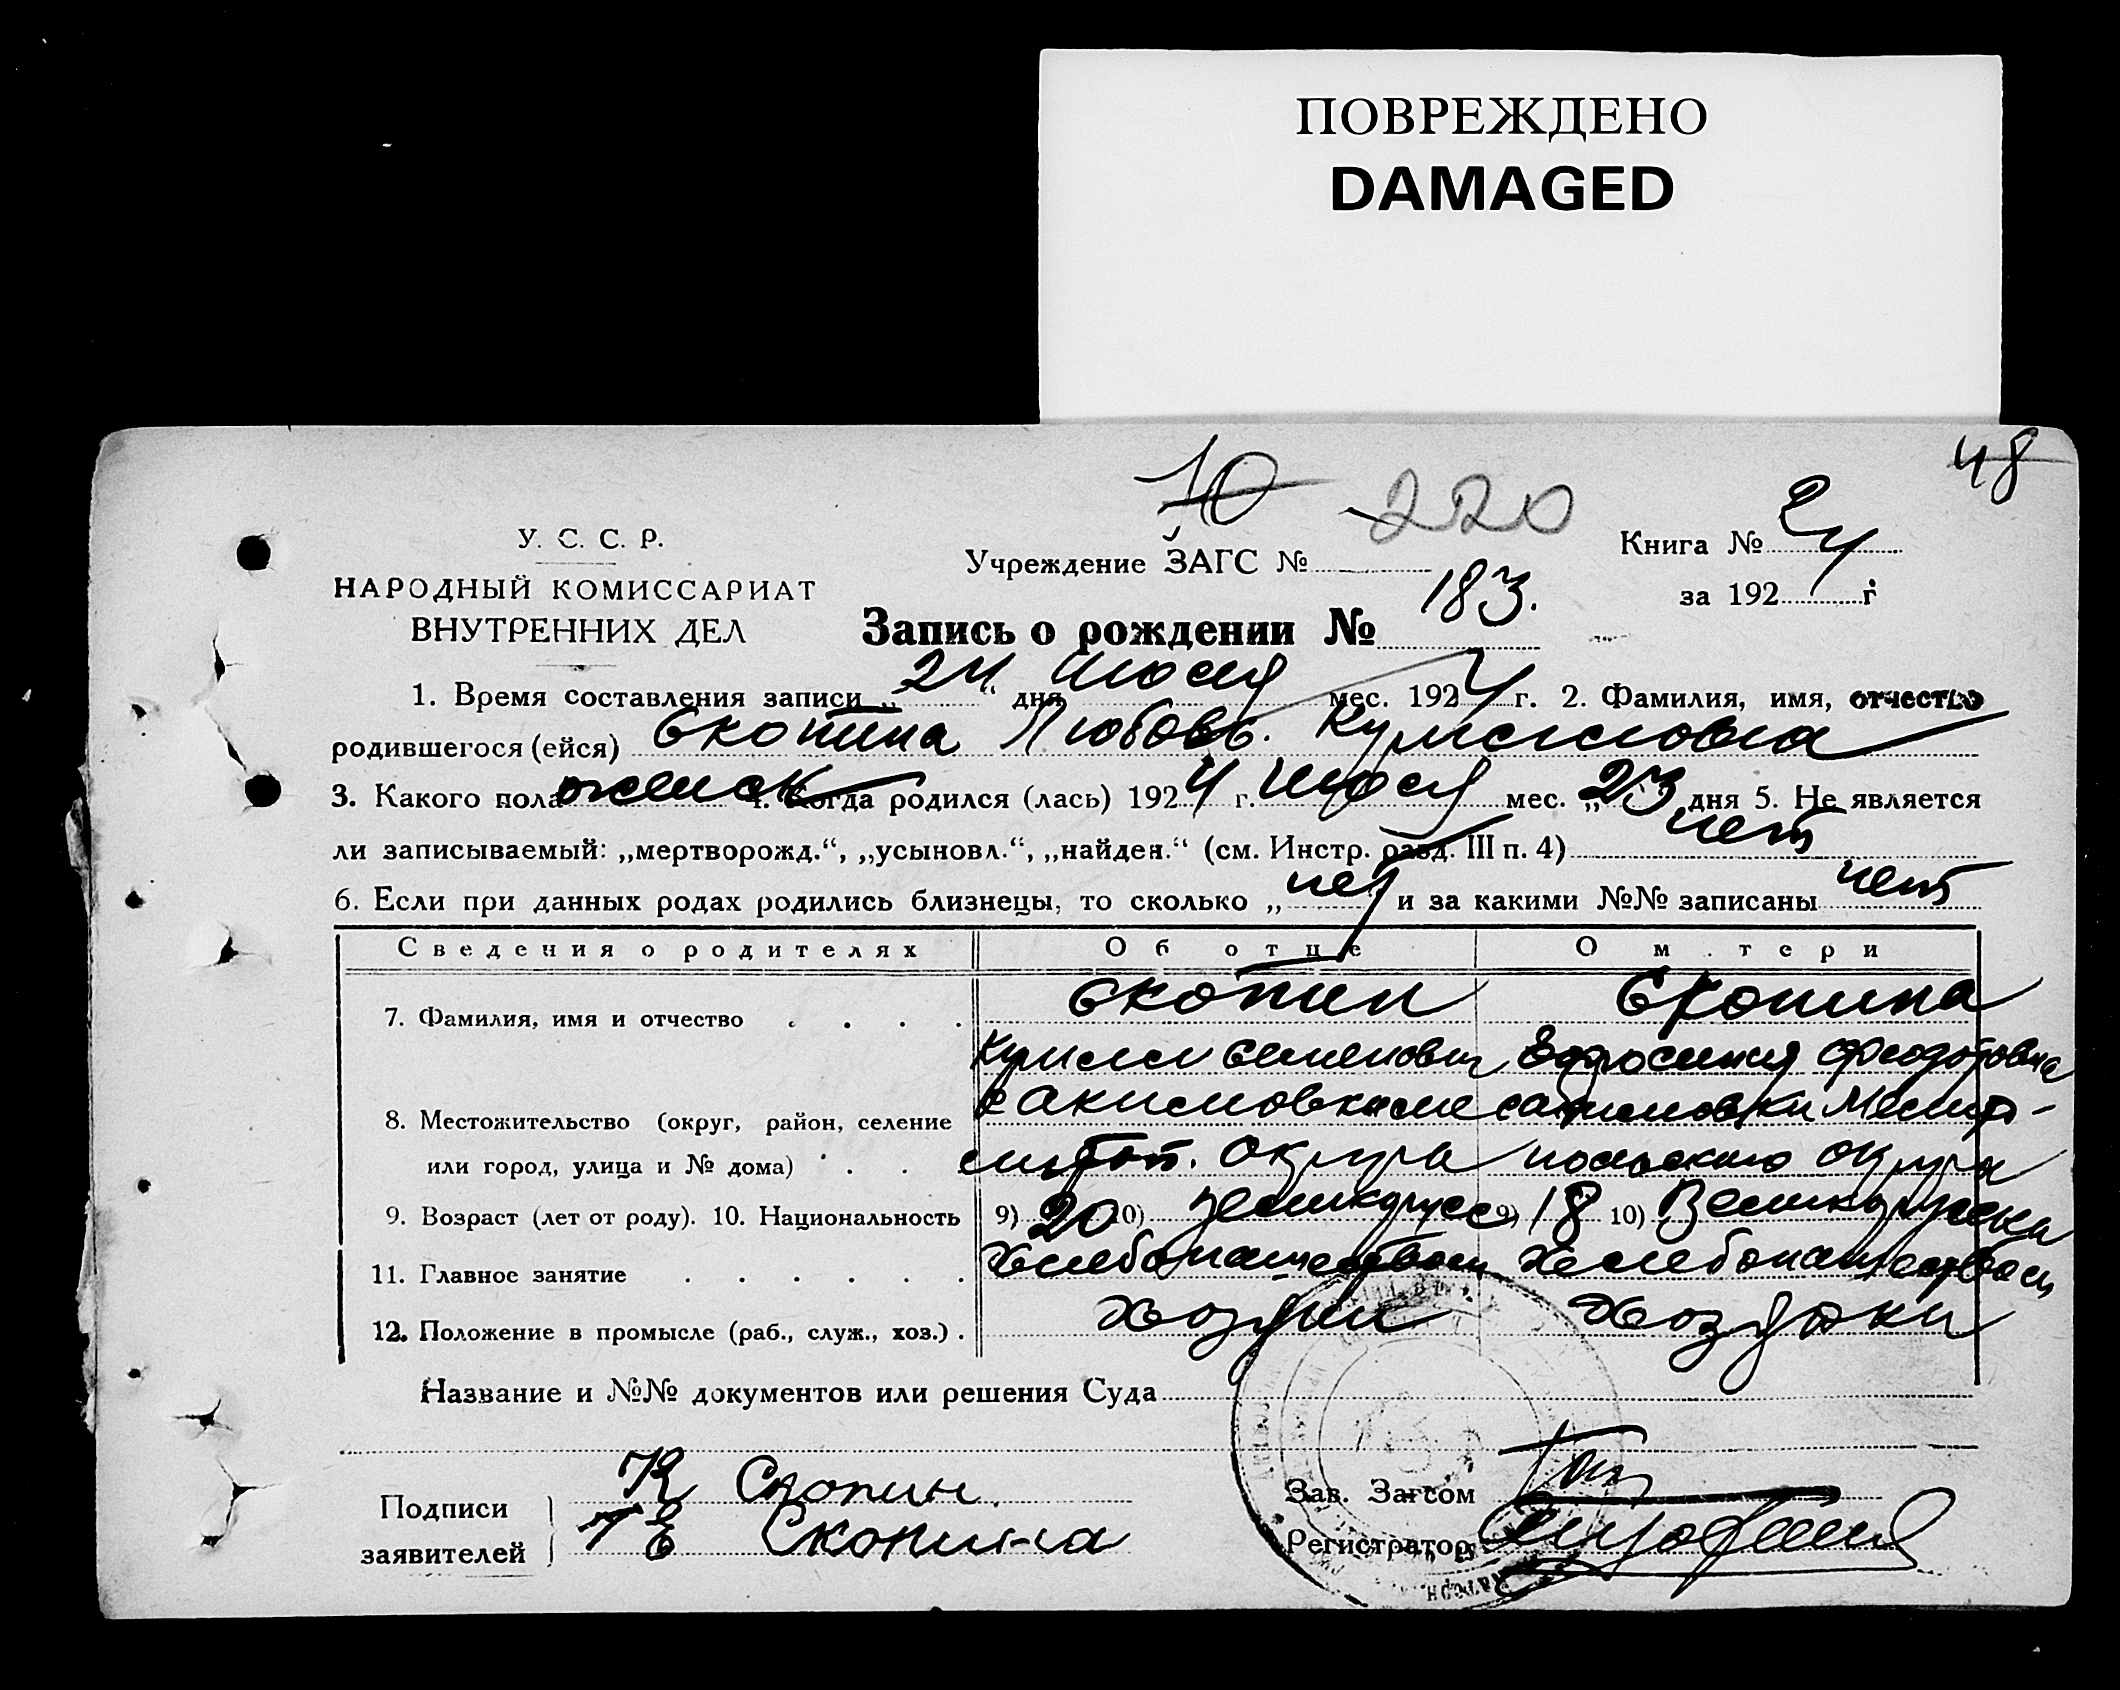 ПОВРЕЖДЕНО
DAMAGED
48
10 220
У. С. С. Р.
НАРОДНЫЙ КОМИССАРИАТ
ВНУТРЕННИХ ДЕЛ
Учреждение ЗАГС №
Книга №
за 1924 г.
Запись о рождении № 183.
1. Время составления записи „24“ дня июля мес. 1924 г. 2. Фамилия, имя, отчество
родившегося (ейся) Скопина Любовь.
3. Какого пола женск 4. Когда родился (лась) 1924 г. июля мес. „23 дня 5. Не является
ли записываемый: „мертворожд.“, „усыновл.“, „найден.“ (см. Инстр. разд. III п. 4) нет
6. Если при данных родах родились близнецы, то сколько „ нет и за какими №№ записаны нет
Сведения о родителях Об отце О м тери
7. Фамилия, имя и отчество . . . . Скопин Скопина
Семенович Ефросиния Феодоровна
8. Местожительство (округ, район, селение с Акимовка Мелито-
или город, улица и № дома) . . . округа польского округа
9. Возраст (лет от роду). 10. Национальность 9) 20 10) Великорусс 9) 18 10) Великорусска
11. Главное занятие . . . . . . Хлебопашество Хлебопашество
12. Положение в промысле (раб., служ., хоз.) . Хозяин Хозяйка
Название и №№ документов или решения Суда
Подписи
заявителей
К Скопин.
Е Скопина
Зав. Загсом
Регистратор